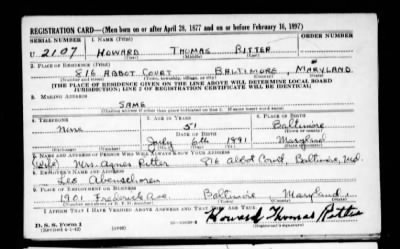 REGISTRATION CARD—(Men born on or after April 28, 1877 and on or before February 16, 1897)
SERIAL NUMBER 1. NAME (Print) ORDER NUMBER
U 2107 HOWARD THOMAS RITTER
2. PLACE OF RESIDENCE (Print)
816 ABBOT COURT BALTIMORE, MARYLAND
(Number and street) (Town, township, village, or city) (County) (State)
[THE PLACE OF RESIDENCE GIVEN ON THE LINE ABOVE WILL DETERMINE LOCAL BOARD
JURISDICTION; LINE 2 OF REGISTRATION CERTIFICATE WILL BE IDENTICAL]
3. MAILING ADDRESS
SAME
[Mailing address if other than place indicated on line 2. If same insert word same]
4. TELEPHONE 5. AGE IN YEARS 6. PLACE OF BIRTH
None 51 Baltimore
DATE OF BIRTH (Town or county)
July 6th 1891 Maryland
(Mo.) (Day) (Yr.) (State or country)
7. NAME AND ADDRESS OF PERSON WHO WILL ALWAYS KNOW YOUR ADDRESS
(Wife) Mrs. Agnes Ritter 816 Abbot Court, Baltimore, Md.
8. EMPLOYER'S NAME AND ADDRESS
Leo
9. PLACE OF EMPLOYMENT OR BUSINESS
1901 Frederick Ave. Baltimore Maryland
(Number and street or R. F. D. number) (Town) (County) (State)
I AFFIRM THAT I HAVE VERIFIED ABOVE ANSWERS AND THAT THEY ARE TRUE.
D. S. S. Form 1 Howard Thomas Ritter
(Revised 4-1-42) (over) (Registrant's signature)